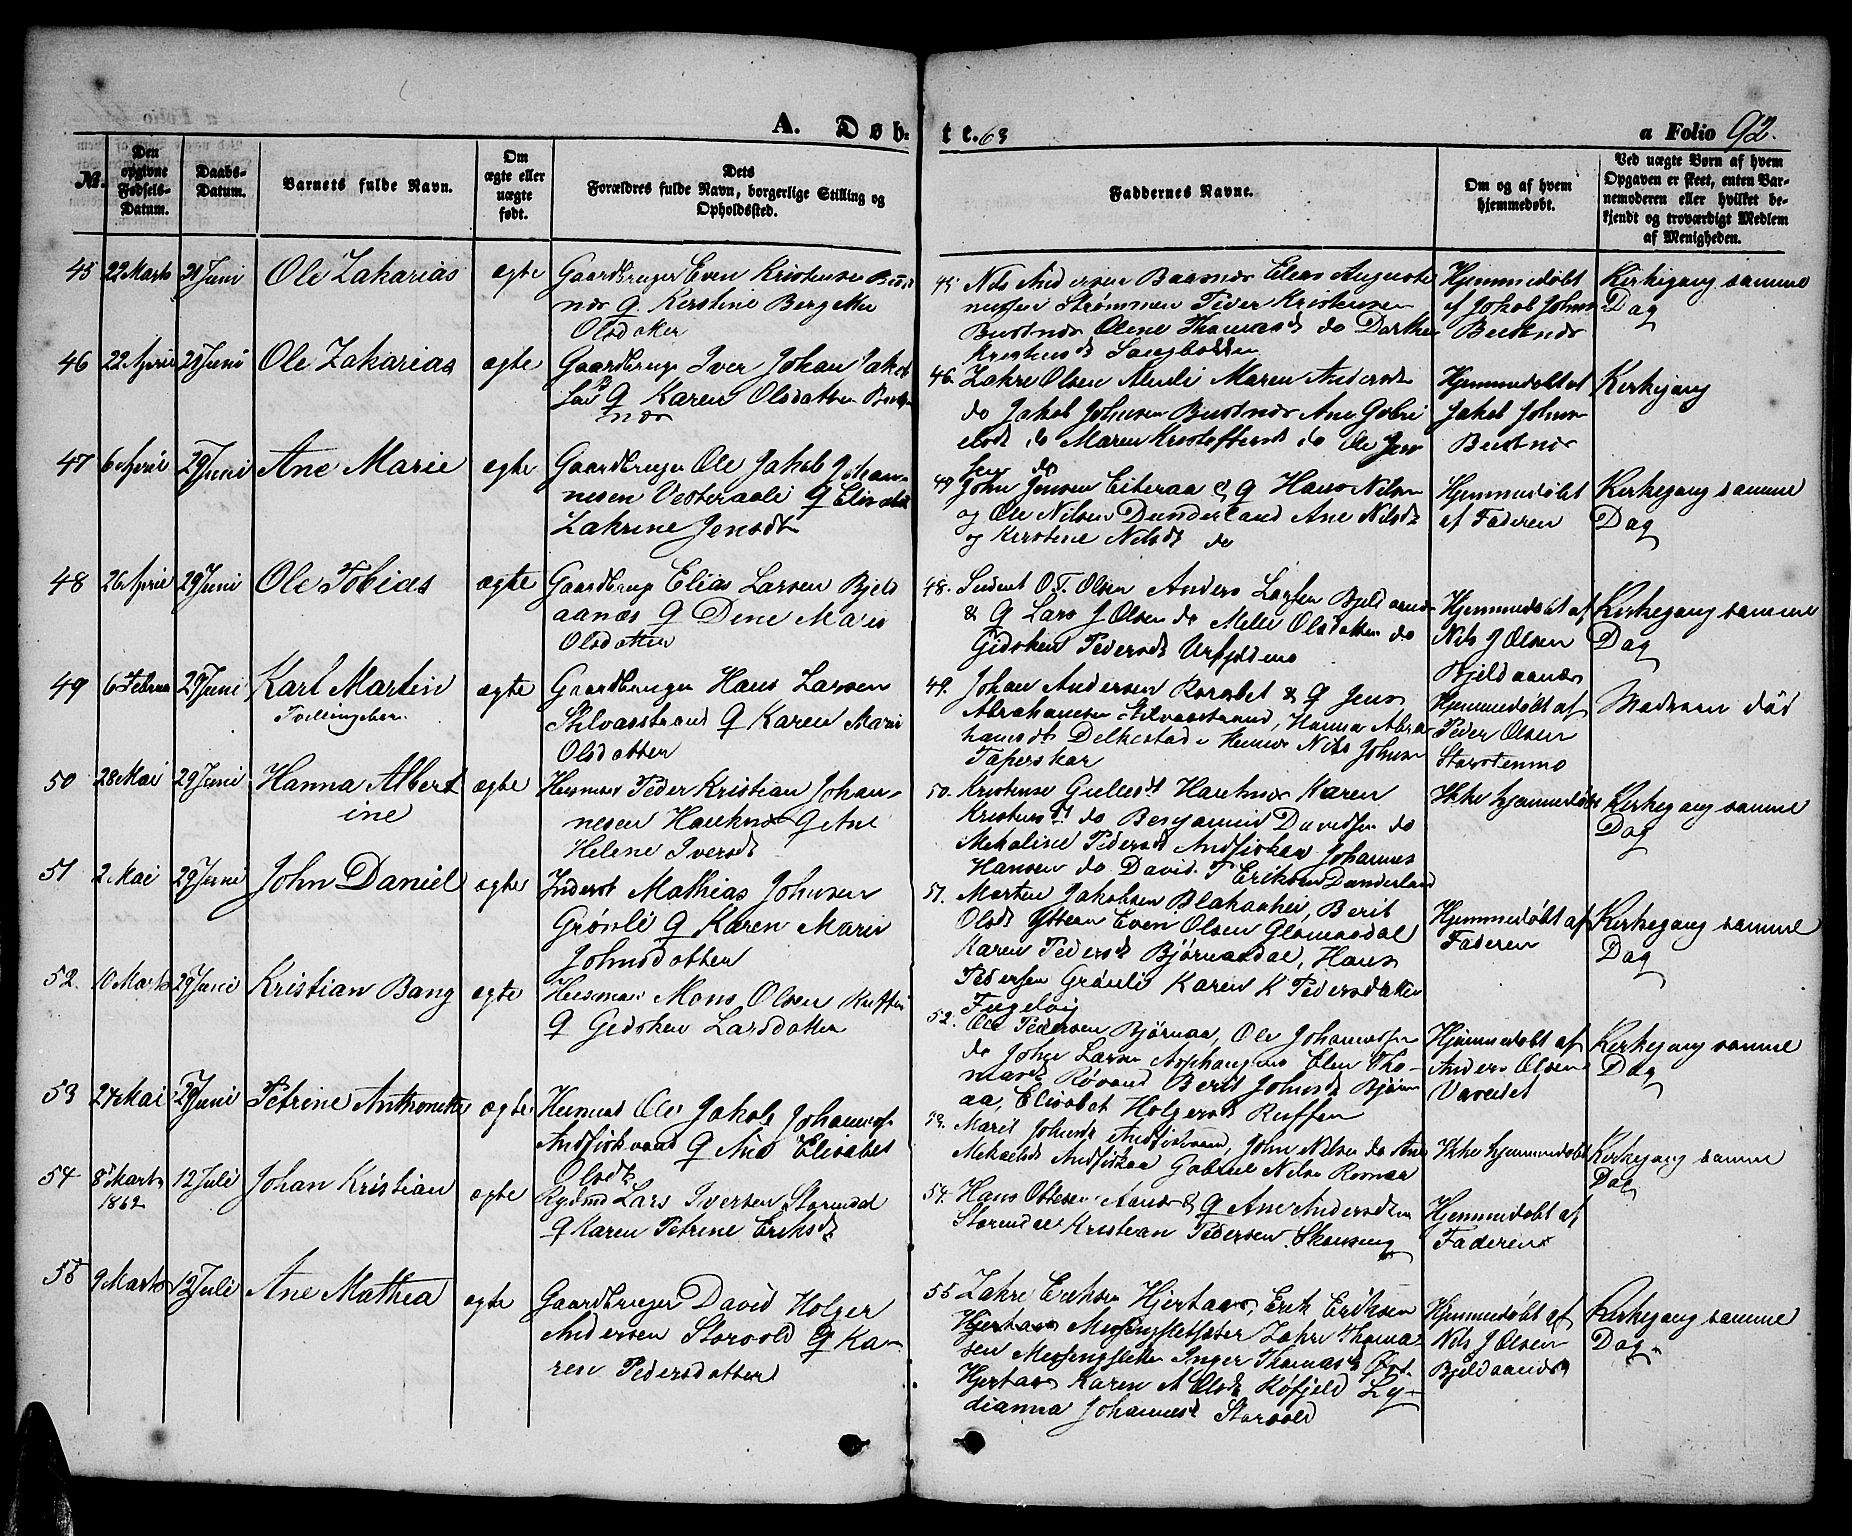 A. Døb-
te. 63
a Folio 92.
No.
Den opgivne Fødsels-Datum.
Daabs-Datum.
Barnets fulde Navn.
Om ægte eller uægte født.
Dets
Forældres fulde Navn, borgerlige Stilling og
Opholdssted.
Faddernes Navne.
Om og af hvem
hjemmedøbt.
Ved uægte Børn af hvem
Opgaven er skeet, enten Bar-
nemoderen eller hvilket be-
kjendt og troværdigt Medlem
af Menigheden.
45 22 Marts 21 Juni Ole Zakarias ægte Gaardbruger Even Kristensen Bust
næs G. Kerstine Bergette
Olsdatter
45 Nils Andersen Baasnæs Elias Auguste
nussen Strømmen Peder Kristensen
Bustnæs Olene Thomasdt do Dorthe
Kristensdt Langbakken
Hjemmedøbt
af Jakob Johns
Bustnæs
Kirkegang samme
Dag
46 22 April 29 Juni Ole Zakarias ægte Gaardbruger Iver Johan Jakob
sen G Karen Olsdatter Bust
næs
46. Zakre Olsen Alteli Maren Andersdt
do Jakob Johnsen Bustnæs Ane Gabri
elsdt do Maren Kristoffersdt do Ole Jen
sen do
Hjemmedøbt af
Jakob Johns
Bustnæs
Kirkegang
47 6 April 29 Juni Ane Marie ægte Gaardbruger Ole Jakob Johan-
nesen Vesteraali G Elisabet
Zakrine Jensdt
47 John Jensen Eiteraa & G Hans Nilsen
og Ole Nilsen Dunderland Ane Nilsdt
og Kerstine Nilsdt do
Hjemmedøbt
af Faderen
Kirkegang samme
Dag
48 26 April 29 Juni Ole Tobias ægte Gaardbrug Elias Larsen Bjeld
aanæs G Dine Marie
Olsdatter
48. Student O. T. Olsen Anders Larsen Bjeldaanæs
& G Lars J Olsen do Melle Olsdatter do
Gidsken Pedersdt Urfjeldmo
Hjemmedøbt af
Nils J Olsen
Bjeldaanæs
Kirkegang samme
Dag
49 6 Februar 29 Juni Karl Martin
Tvillingebarn
ægte Gaardbruger Hans Larsen
Selvaasstrand G Karen Marie
Olsdatter
49. Johan Andersen & G Jens
Abrahamsen Selvaasstrand, Hanna Abra
hamsdt Nils Johnsen
Taperskar
Hjemmedøbt af
Peder Olsen
Storstenmo
Moderen død
50 28 Mai 29 Juni Hanna Albert
ine
ægte Husmand Peder Kristian Johan-
nesen Hauknæs G Ane
Helene Iversdt
50. Kristense Gullesdt Hauknæs Karen
Kristensdt do Benjamin Davidsen do
Mekaline Pedersdt Andfiskaa Johannes
Hansen do David T Eriksen Dunderland
Ikke hjemmedøbt
Kirkegang samme
Dag
51 2 Mai 29 Juni John Daniel ægte Inderst Mathias Johnsen
Grønli G Karen Marie
Johnsdatter
51. Morten Jakobsen Blakaahei, Berit
Olsdt Ytteren Even Olsen Glomaadal
Karen Pedersdt Bjørnaadal, Hans
Pedersen Grønli Karen K Pedersdatter
Fugelvig
Hjemmedøbt af
Faderen
Kirkegang samme
Dag
52. 10 Marts 29 Juni Kristian Bang ægte Husmand Mons Olsen Ruffen
G Gidsken Larsdatter
52. Ole Pedersen Bjørnaa, Ole Johannessen
do John Larsen Asphaugmo Elen Tho-
masdt Røvand Berit Johnsdt Bjørn
aa, Elisabet Holgersdt Ruffen
Hjemmedøbt af
Anders Olsen
Kirkegang samme
Dag
53 24 Mai 29 Juni Petrine Anthonette ægte Husmand Ole Jakob Johannes
Andfiskvand G Ane Elisabet
Olsdt
53. Marit Johnsdt Andfiskvand, John Nilsen do Ane
Mekaelsdt Andfiskaa Gabriel Nilsen
Ikke hjemmedøbt
Kirkegang samme
Dag
54 8 Marts
1862
12 Juli Johan Kristian ægte Rydmd Lars Iversen Stormdal
G Karen Petrine Eriksdt
54. Hans Ottesen Aanæs & G Ane Andersdatter
Stormdal Kristian Pedersen Skonseng
Hjemmedøbt af
Faderen
55 9 Marts 12 Juli Ane Mathea ægte Gaardbruger David Holger
Andersen Storvold G Ka-
ren Pedersdatter
55 Zakre Eriksen Hjertaas, Erik Eriksen
Hjertaas Messingsletten Zakre Thoma-
sen Messingsletten Inger Thomasdt
Hjertaas Karen M Olsdt Røfjeld Ly-
dianna Johannesdt Storvold
Hjemmedøbt af
Nils J Olsen
Bjeldaanæs
Kirkegang samme
Dag.